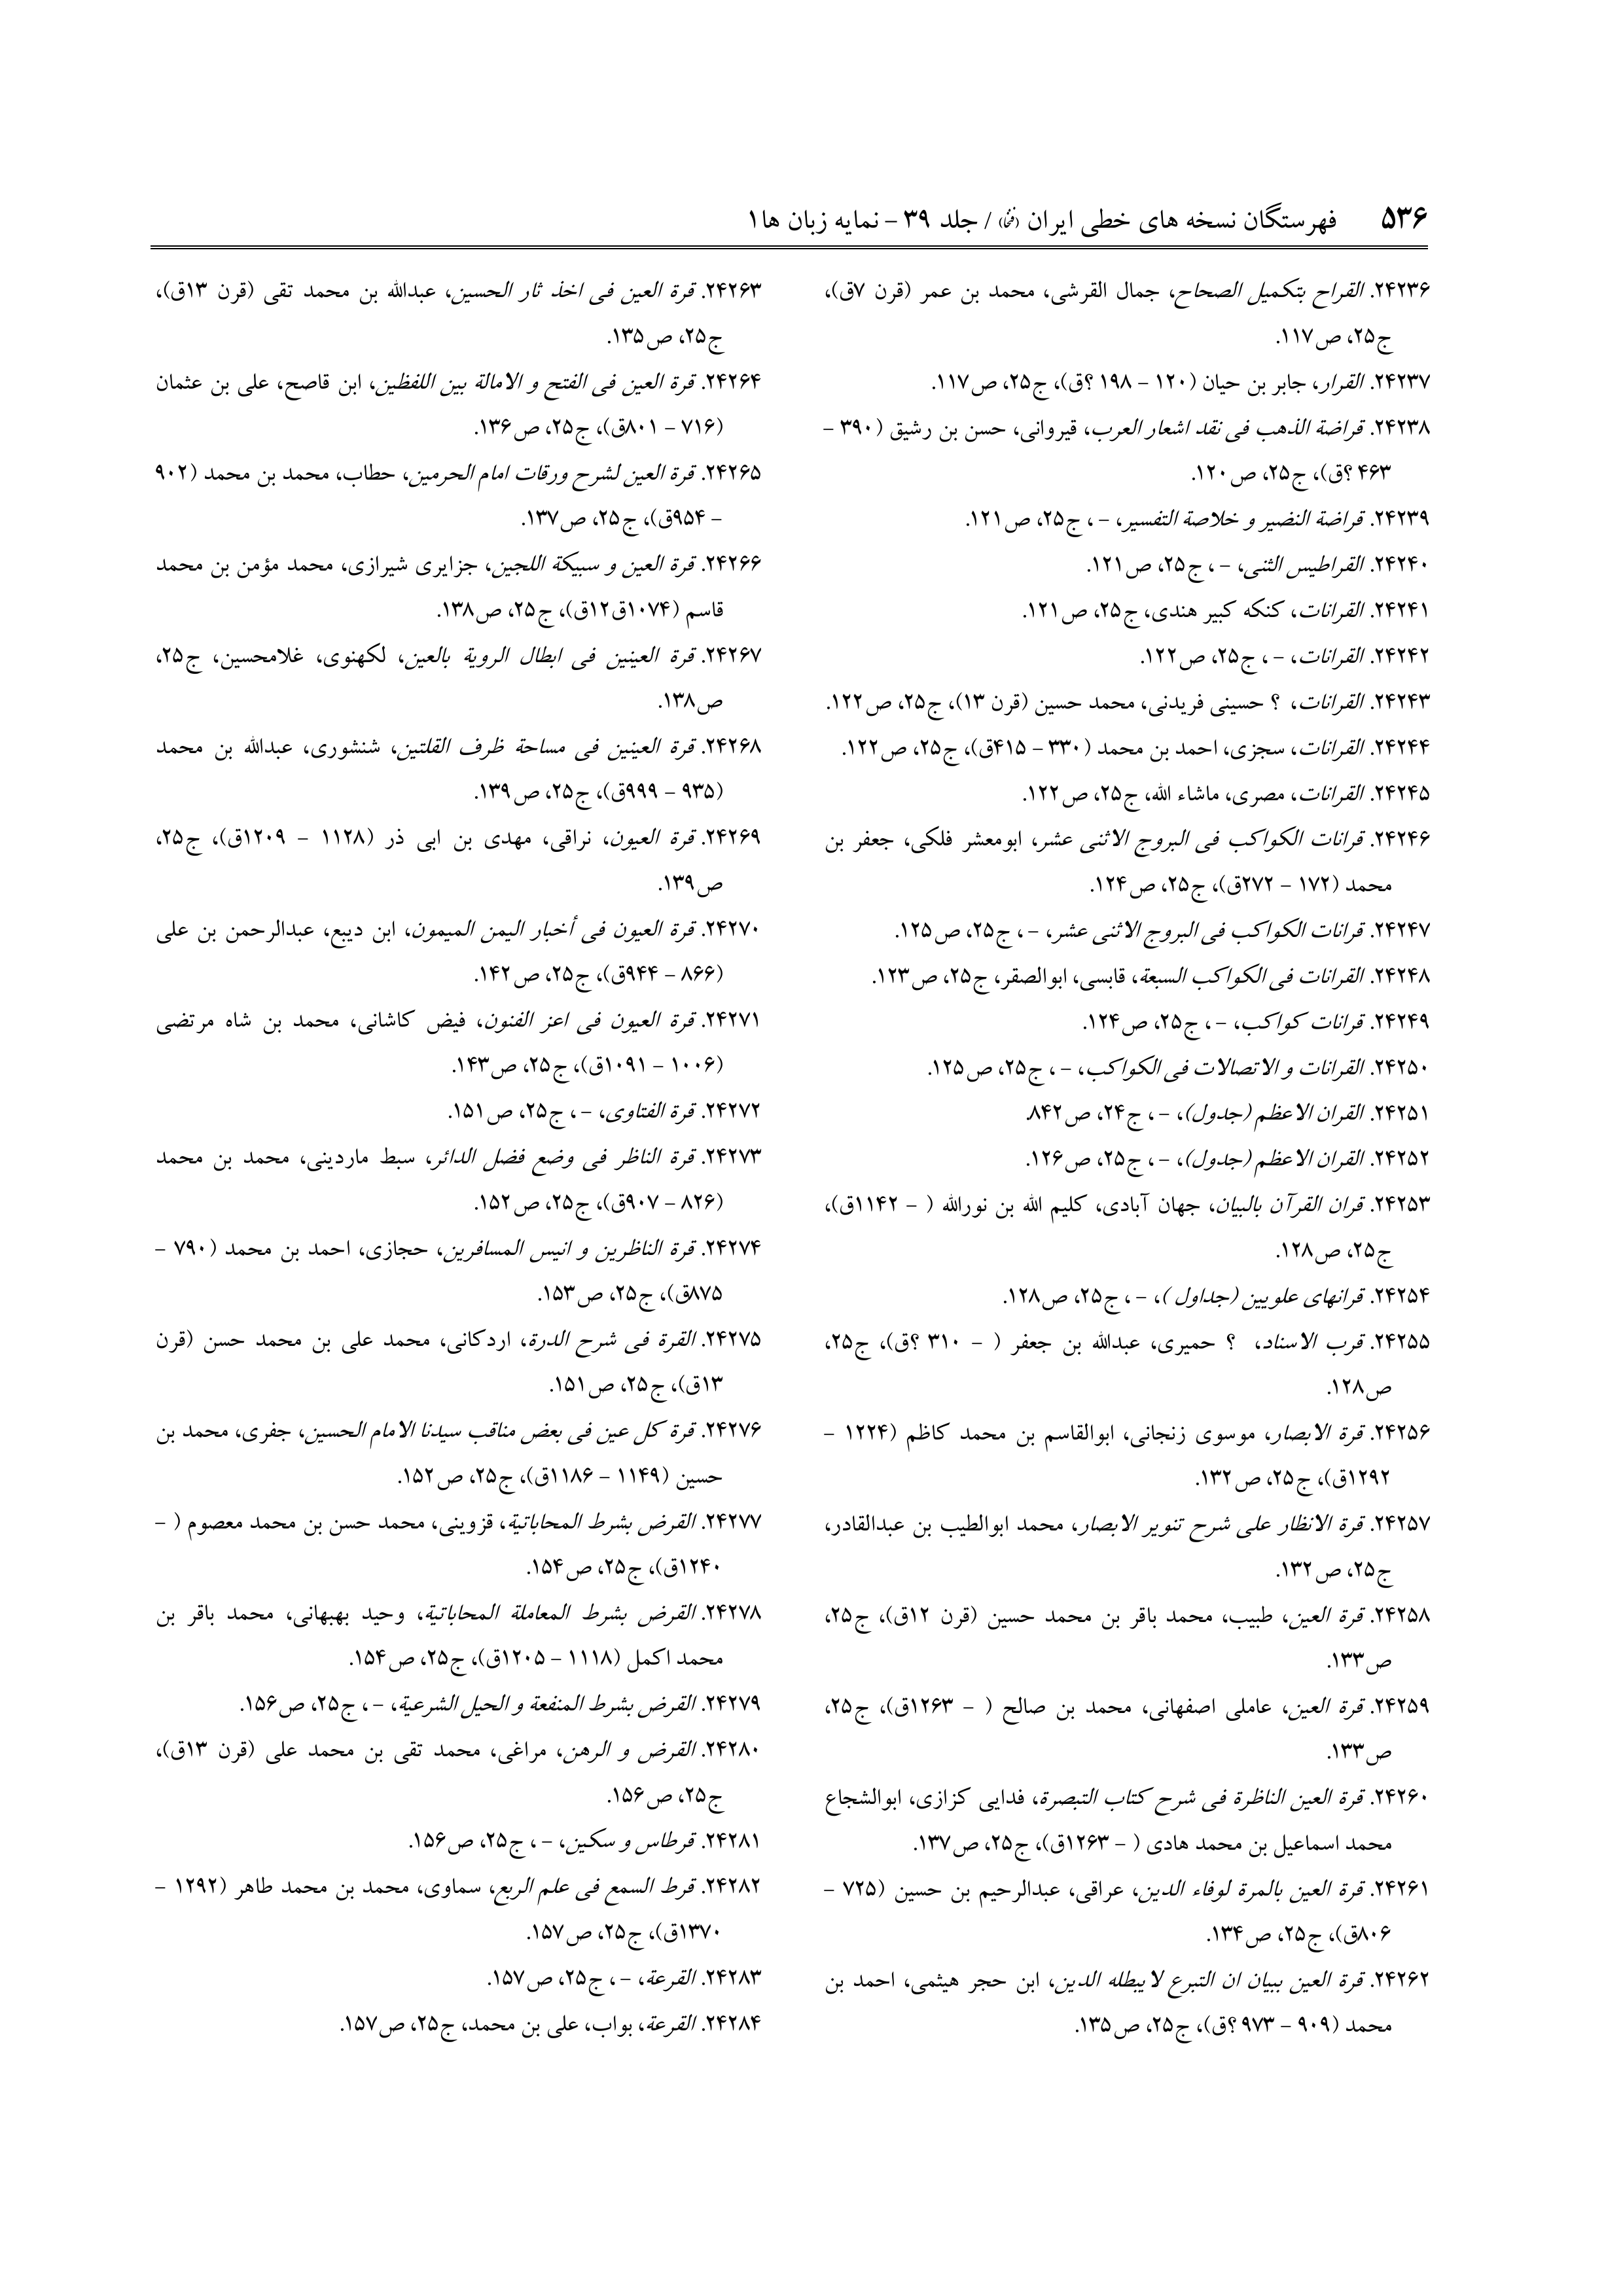 ۵۳۶ فهرستگان نسخه های خطی ایران (فنخا) / جلد ۳۹ – نمایه زبان ها۱
۲۴۲۳۶. القراح بتکمیل الصحاح، جمال القرشی، محمد بن عمر (قرن ۷ق)،
ج۲۵، ص۱۱۷.
۲۴۲۳۷. القرار، جابر بن حیان (۱۲۰ – ۱۹۸ ؟ق)، ج۲۵، ص۱۱۷.
۲۴۲۳۸. قراضة الذهب فی نقد اشعار العرب، قیروانی، حسن بن رشیق (۳۹۰ –
۴۶۳ ؟ق)، ج۲۵، ص۱۲۰.
۲۴۲۳۹. قراضة النضیر و خلاصة التفسیر، – ، ج۲۵، ص۱۲۱.
۲۴۲۴۰. القراطیس الثنی، – ، ج۲۵، ص۱۲۱.
۲۴۲۴۱. القرانات، کنکه کبیر هندی، ج۲۵، ص۱۲۱.
۲۴۲۴۲. القرانات، – ، ج۲۵، ص۱۲۲.
۲۴۲۴۳. القرانات، ؟ حسینی فریدنی، محمد حسین (قرن ۱۳)، ج۲۵، ص۱۲۲.
۲۴۲۴۴. القرانات، سجزی، احمد بن محمد (۳۳۰ – ۴۱۵ق)، ج۲۵، ص۱۲۲.
۲۴۲۴۵. القرانات، مصری، ماشاء الله، ج۲۵، ص۱۲۲.
۲۴۲۴۶. قرانات الکواکب فی البروج الاثنی عشر، ابومعشر فلکی، جعفر بن
محمد (۱۷۲ – ۲۷۲ق)، ج۲۵، ص۱۲۴.
۲۴۲۴۷. قرانات الکواکب فی البروج الاثنی عشر، – ، ج۲۵، ص۱۲۵.
۲۴۲۴۸. القرانات فی الکواکب السبعة، قابسی، ابوالصقر، ج۲۵، ص۱۲۳.
۲۴۲۴۹. قرانات کواکب، – ، ج۲۵، ص۱۲۴.
۲۴۲۵۰. القرانات و الاتصالات فی الکواکب، – ، ج۲۵، ص۱۲۵.
۲۴۲۵۱. القران الاعظم (جدول)، – ، ج۲۴، ص۸۴۲.
۲۴۲۵۲. القران الاعظم (جدول)، – ، ج۲۵، ص۱۲۶.
۲۴۲۵۳. قران القرآن بالبیان، جهان آبادی، کلیم الله بن نورالله ( – ۱۱۴۲ق)،
ج۲۵، ص۱۲۸.
۲۴۲۵۴. قرانهای علویین (جداول )، – ، ج۲۵، ص۱۲۸.
۲۴۲۵۵. قرب الاسناد، ؟ حمیری، عبدالله بن جعفر ( – ۳۱۰ ؟ق)، ج۲۵،
ص۱۲۸.
۲۴۲۵۶. قرة الابصار، موسوی زنجانی، ابوالقاسم بن محمد کاظم (۱۲۲۴ –
۱۲۹۲ق)، ج۲۵، ص۱۳۲.
۲۴۲۵۷. قرة الانظار علی شرح تنویر الابصار، محمد ابوالطیب بن عبدالقادر،
ج۲۵، ص۱۳۲.
۲۴۲۵۸. قرة العین، طبیب، محمد باقر بن محمد حسین (قرن ۱۲ق)، ج۲۵،
ص۱۳۳.
۲۴۲۵۹. قرة العین، عاملی اصفهانی، محمد بن صالح ( – ۱۲۶۳ق)، ج۲۵،
ص۱۳۳.
۲۴۲۶۰. قرة العین الناظرة فی شرح کتاب التبصرة، فدایی کزازی، ابوالشجاع
محمد اسماعیل بن محمد هادی ( – ۱۲۶۳ق)، ج۲۵، ص۱۳۷.
۲۴۲۶۱. قرة العین بالمرة لوفاء الدین، عراقی، عبدالرحیم بن حسین (۷۲۵ –
۸۰۶ق)، ج۲۵، ص۱۳۴.
۲۴۲۶۲. قرة العین ببیان ان التبرع لا یبطله الدین، ابن حجر هیثمی، احمد بن
محمد (۹۰۹ – ۹۷۳ ؟ق)، ج۲۵، ص۱۳۵.
۲۴۲۶۳. قرة العین فی اخذ ثار الحسین، عبدالله بن محمد تقی (قرن ۱۳ق)،
ج۲۵، ص۱۳۵.
۲۴۲۶۴. قرة العین فی الفتح و الامالة بین اللفظین، ابن قاصح، علی بن عثمان
(۷۱۶ – ۸۰۱ق)، ج۲۵، ص۱۳۶.
۲۴۲۶۵. قرة العین لشرح ورقات امام الحرمین، حطاب، محمد بن محمد (۹۰۲
– ۹۵۴ق)، ج۲۵، ص۱۳۷.
۲۴۲۶۶. قرة العین و سبیکة اللجین، جزایری شیرازی، محمد مؤمن بن محمد
قاسم (۱۰۷۴ق۱۲ق)، ج۲۵، ص۱۳۸.
۲۴۲۶۷. قرة العینین فی ابطال الرویة بالعین، لکهنوی، غلامحسین، ج۲۵،
ص۱۳۸.
۲۴۲۶۸. قرة العینین فی مساحة ظرف القلتین، شنشوری، عبدالله بن محمد
(۹۳۵ – ۹۹۹ق)، ج۲۵، ص۱۳۹.
۲۴۲۶۹. قرة العیون، نراقی، مهدی بن ابی ذر (۱۱۲۸ – ۱۲۰۹ق)، ج۲۵،
ص۱۳۹.
۲۴۲۷۰. قرة العیون فی أخبار الیمن المیمون، ابن دیبع، عبدالرحمن بن علی
(۸۶۶ – ۹۴۴ق)، ج۲۵، ص۱۴۲.
۲۴۲۷۱. قرة العیون فی اعز الفنون، فیض کاشانی، محمد بن شاه مرتضی
(۱۰۰۶ – ۱۰۹۱ق)، ج۲۵، ص۱۴۳.
۲۴۲۷۲. قرة الفتاوی، – ، ج۲۵، ص۱۵۱.
۲۴۲۷۳. قرة الناظر فی وضع فضل الدائر، سبط ماردینی، محمد بن محمد
(۸۲۶ – ۹۰۷ق)، ج۲۵، ص۱۵۲.
۲۴۲۷۴. قرة الناظرین و انیس المسافرین، حجازی، احمد بن محمد (۷۹۰ –
۸۷۵ق)، ج۲۵، ص۱۵۳.
۲۴۲۷۵. القرة فی شرح الدرة، اردکانی، محمد علی بن محمد حسن (قرن
۱۳ق)، ج۲۵، ص۱۵۱.
۲۴۲۷۶. قرة کل عین فی بعض مناقب سیدنا الامام الحسین، جفری، محمد بن
حسین (۱۱۴۹ – ۱۱۸۶ق)، ج۲۵، ص۱۵۲.
۲۴۲۷۷. القرض بشرط المحاباتیة، قزوینی، محمد حسن بن محمد معصوم ( –
۱۲۴۰ق)، ج۲۵، ص۱۵۴.
۲۴۲۷۸. القرض بشرط المعاملة المحاباتیة، وحید بهبهانی، محمد باقر بن
محمد اکمل (۱۱۱۸ – ۱۲۰۵ق)، ج۲۵، ص۱۵۴.
۲۴۲۷۹. القرض بشرط المنفعة و الحیل الشرعیة، – ، ج۲۵، ص۱۵۶.
۲۴۲۸۰. القرض و الرهن، مراغی، محمد تقی بن محمد علی (قرن ۱۳ق)،
ج۲۵، ص۱۵۶.
۲۴۲۸۱. قرطاس و سکین، – ، ج۲۵، ص۱۵۶.
۲۴۲۸۲. قرط السمع فی علم الربع، سماوی، محمد بن محمد طاهر (۱۲۹۲ –
۱۳۷۰ق)، ج۲۵، ص۱۵۷.
۲۴۲۸۳. القرعة، – ، ج۲۵، ص۱۵۷.
۲۴۲۸۴. القرعة، بواب، علی بن محمد، ج۲۵، ص۱۵۷.